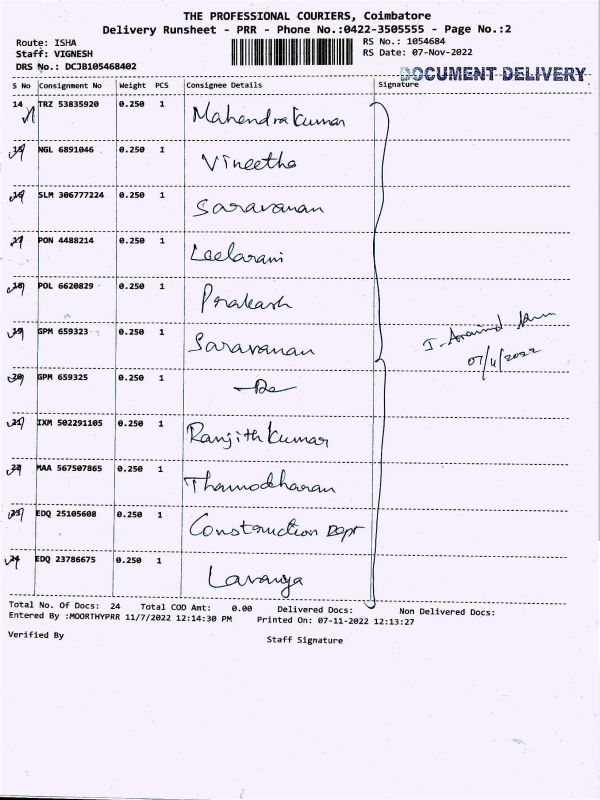 THE PROFESSIONAL COURIERS, Coimbatore
Delivery Runsheet - PRR - Phone No.:0422-3505555 - Page No.:2
Route: ISHA
Staff: VIGNESH
DRS No.: DCJB105468402
RS No.: 1054684
RS Date: 07-Nov-2022
DOCUMENT DELIVERY
S No Consignment No Weight PCS Consignee Details Signature
14 TRZ 53835920 0.250 1 Mahendra Kumar
15 NGL 6891046 0.250 1 Vineetha
16 SLM 306777224 0.250 1 Saravanan
17 PON 4488214 0.250 1 Leelarani
18 POL 6620829 0.250 1 Prakash
19 GPM 659323 0.250 1 Saravanan
07/11/2022
20 GPM 659325 0.250 1
21 IXM 502291105 0.250 1 Ranjith Kumar
22 MAA 567507865 0.250 1 Thamodharan
23 EDQ 25105608 0.250 1 Construction Dept
24 EDQ 23786675 0.250 1 Lavanya
Total No. Of Docs: 24 Total COD Amt: 0.00 Delivered Docs: Non Delivered Docs:
Entered By :MOORTHYPRR 11/7/2022 12:14:30 PM Printed On: 07-11-2022 12:13:27
Verified By Staff Signature